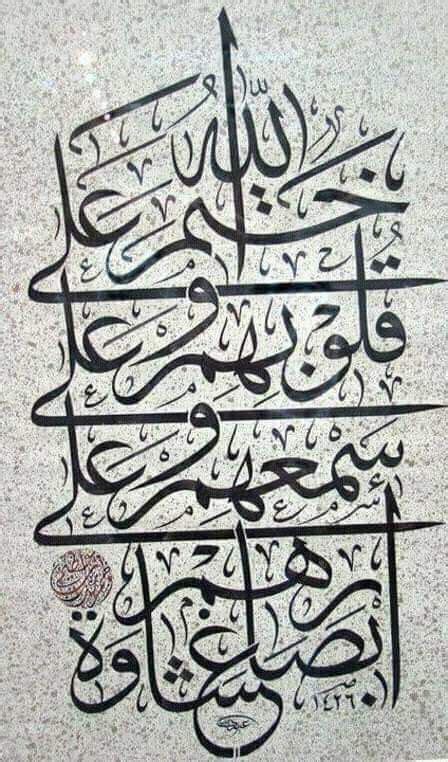 ختم الله على
قلوبهم وعلى
سمعهم وعلى
أبصارهم غشاوة
١٤٢٦